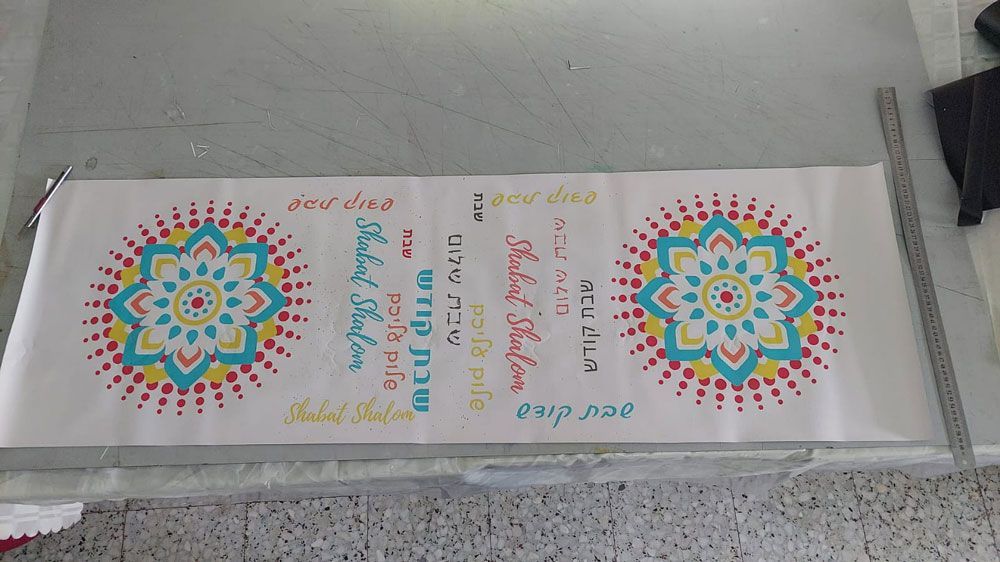 שבת קודש
שבת
Shabat Shalom
שלום עליכם
שבת קודש
Shabat Shalom
שבת שלום
שבת
שלום עליכם
שבת קודש
Shabat Shalom
שבת שלום
שבת קודש
שבת קודש